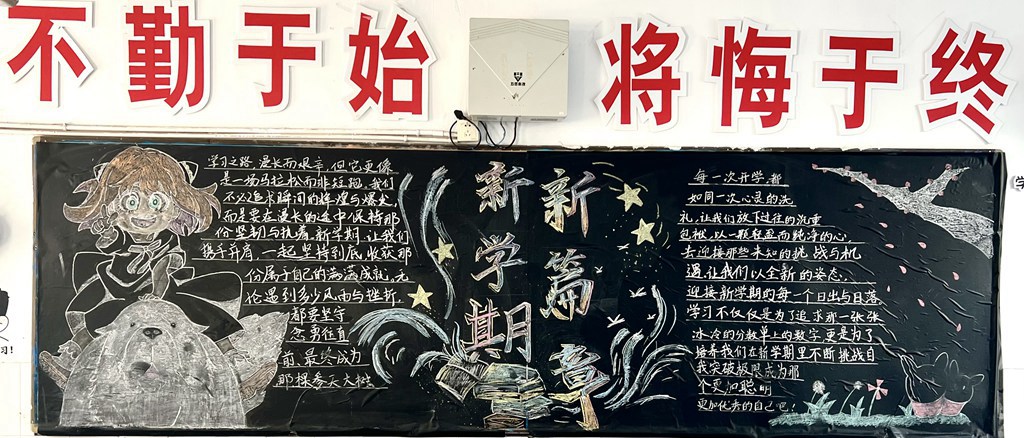 不勤于始 将悔于终
学习之路漫长而艰辛,但它更像
是一场马拉松而非短跑,我们
不必追求瞬间的辉煌与爆发
而是要在漫长的途中保持那
份坚韧与执着,新学期,让我们
携手并肩,一起坚持到底,收获那
份属于自己的满满成就,无
论遇到多少风雨与挫折,
都要坚守
勇往直
前,最终成为
那棵参天大树
新学期
新篇章
每一次开学,都
如同一次心灵的洗
礼,让我们放下过往的沉重
包袱,以一颗轻盈而纯净的心
去迎接那些未知的挑战与机
遇,让我们以全新的姿态,
迎接新学期的每一个日出与日落
学习不仅仅是为了追求那一张张
冰冷的分数单上的数字更是为了
培养我们在新学期里不断挑战自
我突破极限成为那
个更加聪明
更加优秀的自己吧!